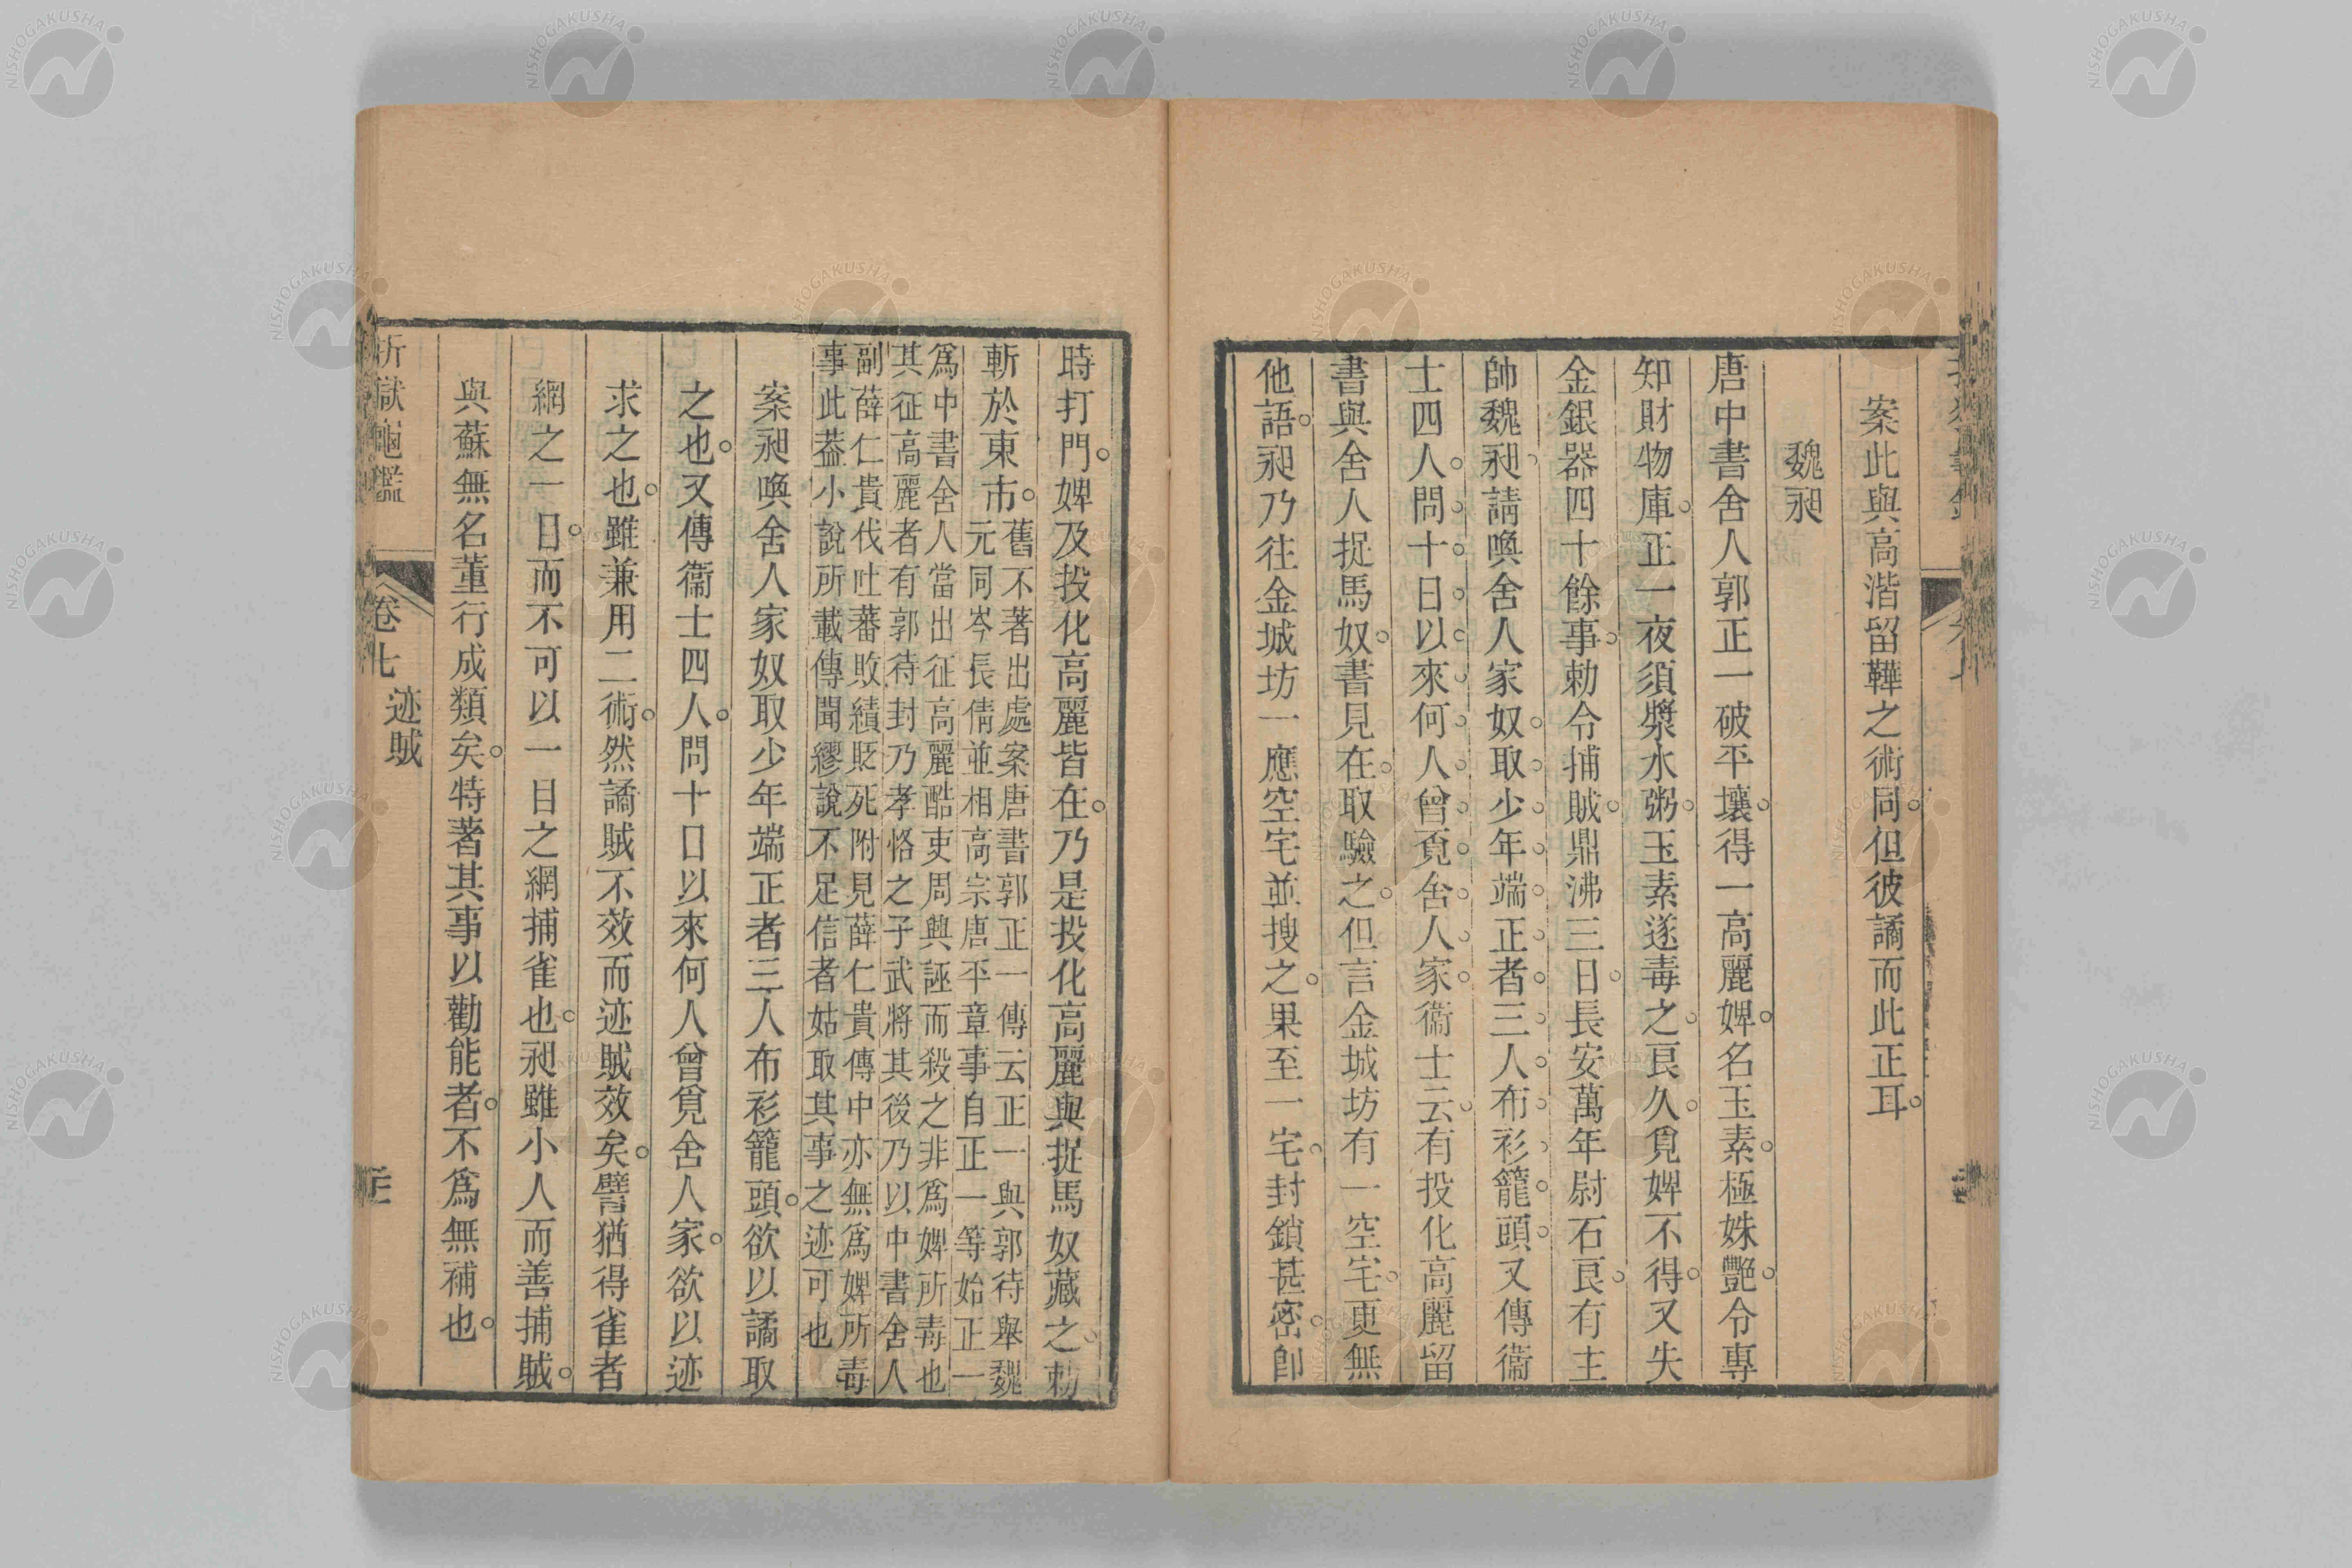 案此與高湝留鞾之術同但彼譎而此正耳
魏昶
唐中書舍人郭正一破平壤得一高麗婢名玉素極姝艷令專
知財物庫正一夜須漿水粥玉素遂毒之良久覓婢不得又失
金銀器四十餘事勅令捕賊鼎沸三日長安萬年尉石良有主
帥魏昶請喚舍人家奴取少年端正者三人布衫籠頭又傳衞
士四人問十日以來何人曾覔舍人家衞士云有投化高麗留
書與舍人捉馬奴書見在取驗之但言金城坊有一空宅更無
他語昶乃往金城坊一應空宅並搜之果至一宅封鎖甚密卽
時打門婢及投化高麗皆在乃是投化高麗與捉馬奴藏之勅
斬於東市
舊不著出處案唐書郭正一傳云正一與郭待舉魏
元同岑長倩並相高宗唐平章事自正一等始正一
爲中書舍人當出征高麗酷吏周興誣而殺之非爲婢所毒也
其征高麗者有郭待封乃孝恪之子武將其後乃以中書舍人
副薛仁貴伐吐蕃敗績貶死附見薛仁貴傳中亦無爲婢所毒
事此葢小說所載傳聞繆說不足信者姑取其事之迹可也
案昶喚舍人家奴取少年端正者三人布衫籠頭欲以譎取
之也又傳衞士四人問十日以來何人曾覓舍人家欲以迹
求之也雖兼用二術然譎賊不效而迹賊效矣譬猶得雀者
網之一日而不可以一目之網捕雀也昶雖小人而善捕賊
與蘇無名董行成類矣特著其事以勸能者不爲無補也
折獄龜鑑
卷七
迹賊
NISHOGAKUSHA